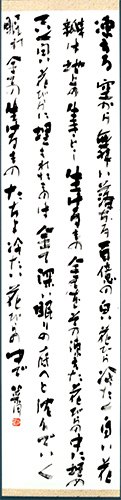 凍きる空から舞い落ちる百億の白い花びら冷たく白い花
は地上の生きとし生けるもの全てを凍きた花びらの中に埋め
真白い花びらに埋もれたものは全て深い眠りの底へと沈んでいく
眠れ全ての生けるものたちよ冷たい花びらの中で